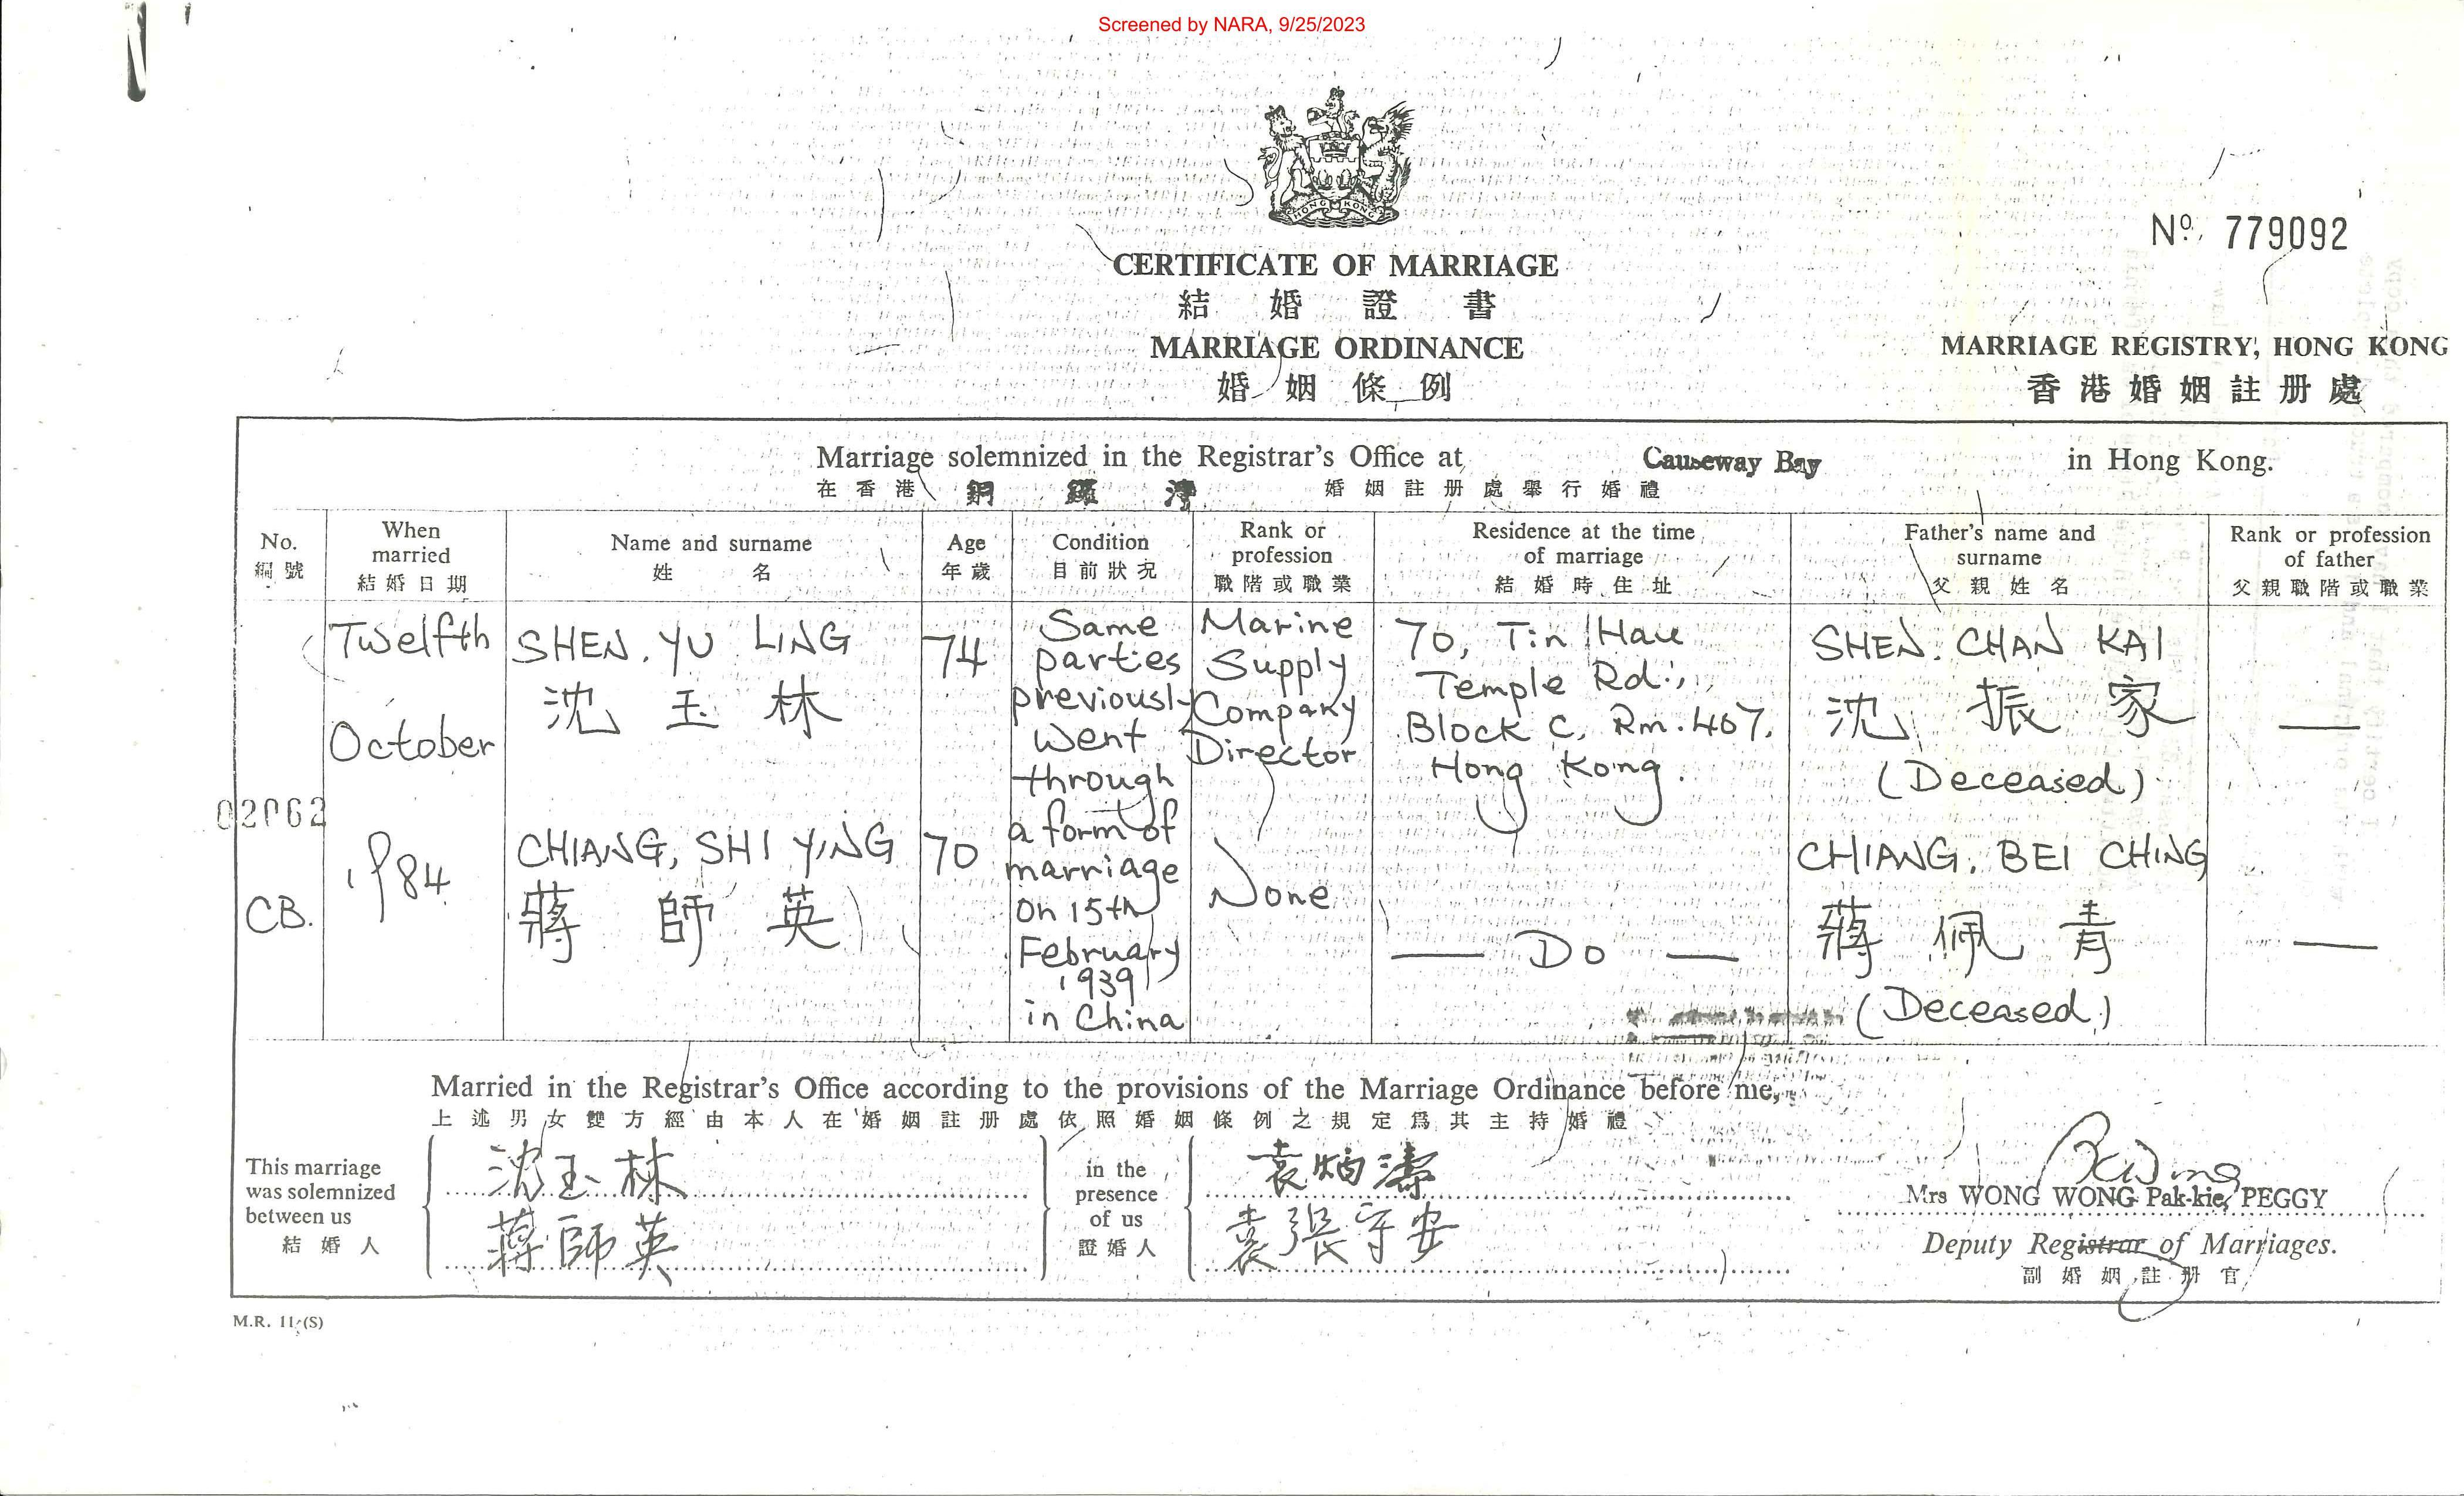 Screened by NARA, 9/25/2023
HONG KONG
Nº 779092
CERTIFICATE OF MARRIAGE
結婚證書
MARRIAGE ORDINANCE
婚姻條例
MARRIAGE REGISTRY, HONG KONG
香港婚姻註册處
Marriage solemnized in the Registrar's Office at Causeway Bay in Hong Kong.
在香港 銅鑼灣 婚姻註册處舉行婚禮
No.
編號
When
married
結婚日期
Name and surname
姓名
Age
年歲
Condition
目前狀況
Rank or
profession
職階或職業
Residence at the time
of marriage
結婚時住址
Father's name and
surname
父親姓名
Rank or profession
of father
父親職階或職業
02062
CB.
Twelfth
October
1984
SHEN, YU LING
沈玉林
74
Same
parties
previously
went
through
a form of
marriage
on 15th
February
1939
in China
Marine
Supply
Company
Director
70, Tin Hau
Temple Rd.,
Block C, Rm. 407,
Hong Kong.
SHEN, CHAN KAI
沈振家
(Deceased)
—
CHIANG, SHI YING
蔣師英
70
None
— Do —
CHIANG, BEI CHING
蔣佩青
(Deceased)
—
Married in the Registrar's Office according to the provisions of the Marriage Ordinance before me,
上述男女雙方經由本人在婚姻註册處依照婚姻條例之規定爲其主持婚禮
This marriage
was solemnized
between us
結婚人
沈玉林
蔣師英
in the
presence
of us
證婚人
袁炳濤
袁張守安
Mrs WONG WONG Pak-kie, PEGGY
Deputy Registrar of Marriages.
副婚姻註册官
M.R. 11 (S)